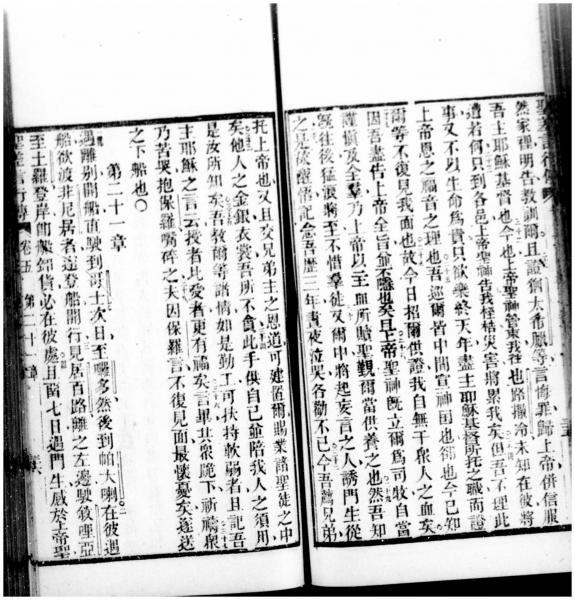 然家裡明告教訓爾且證猶太希臘等言悔罪歸上帝併信服
吾主耶穌基督也今也上帝聖神管束我往也路撒冷未知在彼將
遭若何只到各邑上帝聖神告我桎梏災害將累我矣但吾不理此
事又不以生命爲貴只欲樂終天年盡主耶穌基督所托之職而證
上帝恩之福音之理也吾巡爾皆中間宣神國也卻也今已知
爾等不復見我面也故今日招爾供證我自無干衆人之血矣
因吾盡告上帝全旨並不隱也矣且上帝聖神旣立爾爲司牧自當
謹慎及全羣乃上帝以至血所贖聖會爾當供養之也然吾知
我往後猛狼將至不惜羣徒又爾中將起妄言之人誘門生從
之是故儆醒記念吾歷三年晝夜泣哭各勸不已今吾薦兄弟
托上帝也又且交兄弟主之恩道可建置爾賜業諸聖徒之中
矣他人之金銀衣裳吾所不貪此手供自己並陪我人之須用
是汝所知矣吾教爾等諸情如是勤工可扶持軟弱者且記吾
主耶穌之言云授者比愛者更有福矣言畢共衆跪下祈禱衆
乃苦哭抱保羅嘴碎之夫因保羅言不復見面最懷憂矣遂送
之下船也〇
第二十一章
遇離別開船直駛到哥士次日至囉多然後到帕大喇在彼遇
船欲波非尼居者遂登船開行見居百路離之左邊駛敘哩亞
至土羅登岸帥船卸貨必在彼處且留七日遇門生感於上帝聖
聖差言行傳 卷五 第二十一章